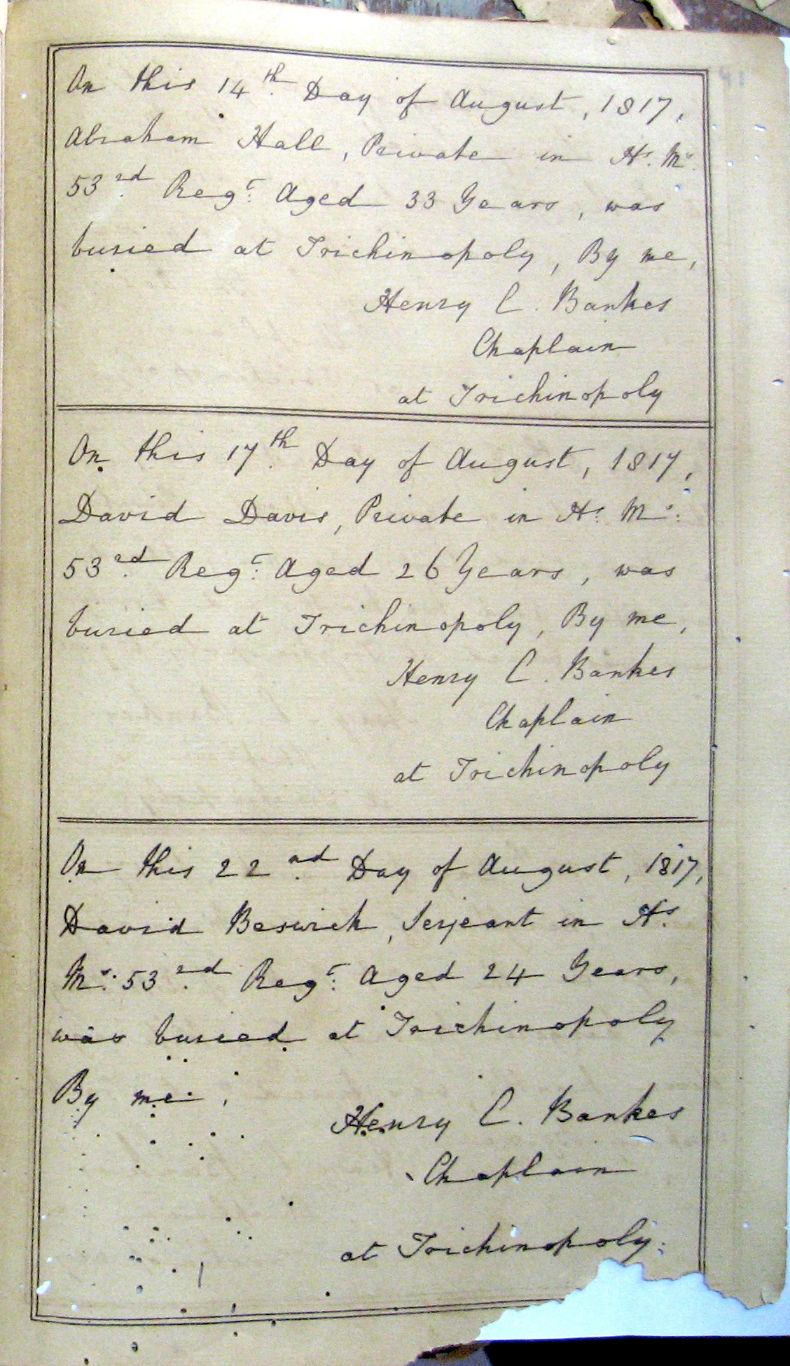 On this 14th Day of August, 1817,
Abraham Hall, Private in Hs. Ms.
53rd Regt. Aged 33 Years, was
buried at Trichinopoly, By me,
Henry C. Bankes
Chaplain
at Trichinopoly
On this 17th Day of August, 1817,
David Davis, Private in Hs. Ms.
53rd Regt. Aged 26 Years, was
buried at Trichinopoly, By me,
Henry C. Bankes
Chaplain
at Trichinopoly
On this 22nd Day of August, 1817,
David Beswick, Serjeant in Hs.
Ms. 53rd Regt. Aged 24 Years,
was buried at Trichinopoly
By me,
Henry C. Bankes
Chaplain
at Trichinopoly.